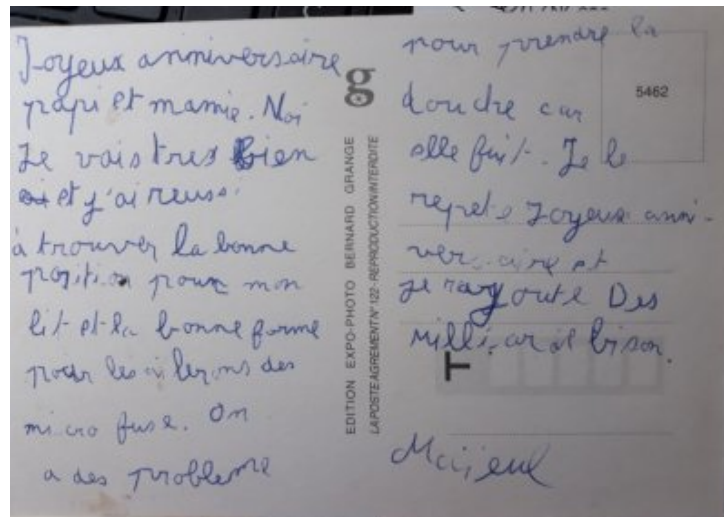 Joyeux anniversaire
papi et mamie. Moi
Je vais tres bien
et j'ai reussi
à trouver la bonne
position pour mon
lit et la bonne forme
pour les ailerons des
micro fuse. On
a des probleme
g
EDITION EXPO-PHOTO BERNARD GRANGE
LA POSTE AGREMENT N° 122 - REPRODUCTION INTERDITE
5462
pour prendre la
douche car
elle fuit. Je le
repete Joyeux anni-
versaire et
je rajoute Des
milliar de bison.
T